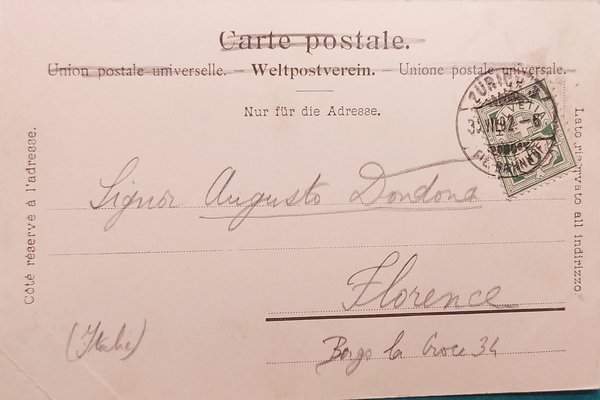 Carte postale.
Union postale universelle. – Weltpostverein. – Unione postale universale.
Nur für die Adresse.
Côté réservé à l'adresse.
Lato riservato all indirizzo
ZÜRICH
Signor Augusto Dondona
Florence
Borgo la Croce 34
(Italie)